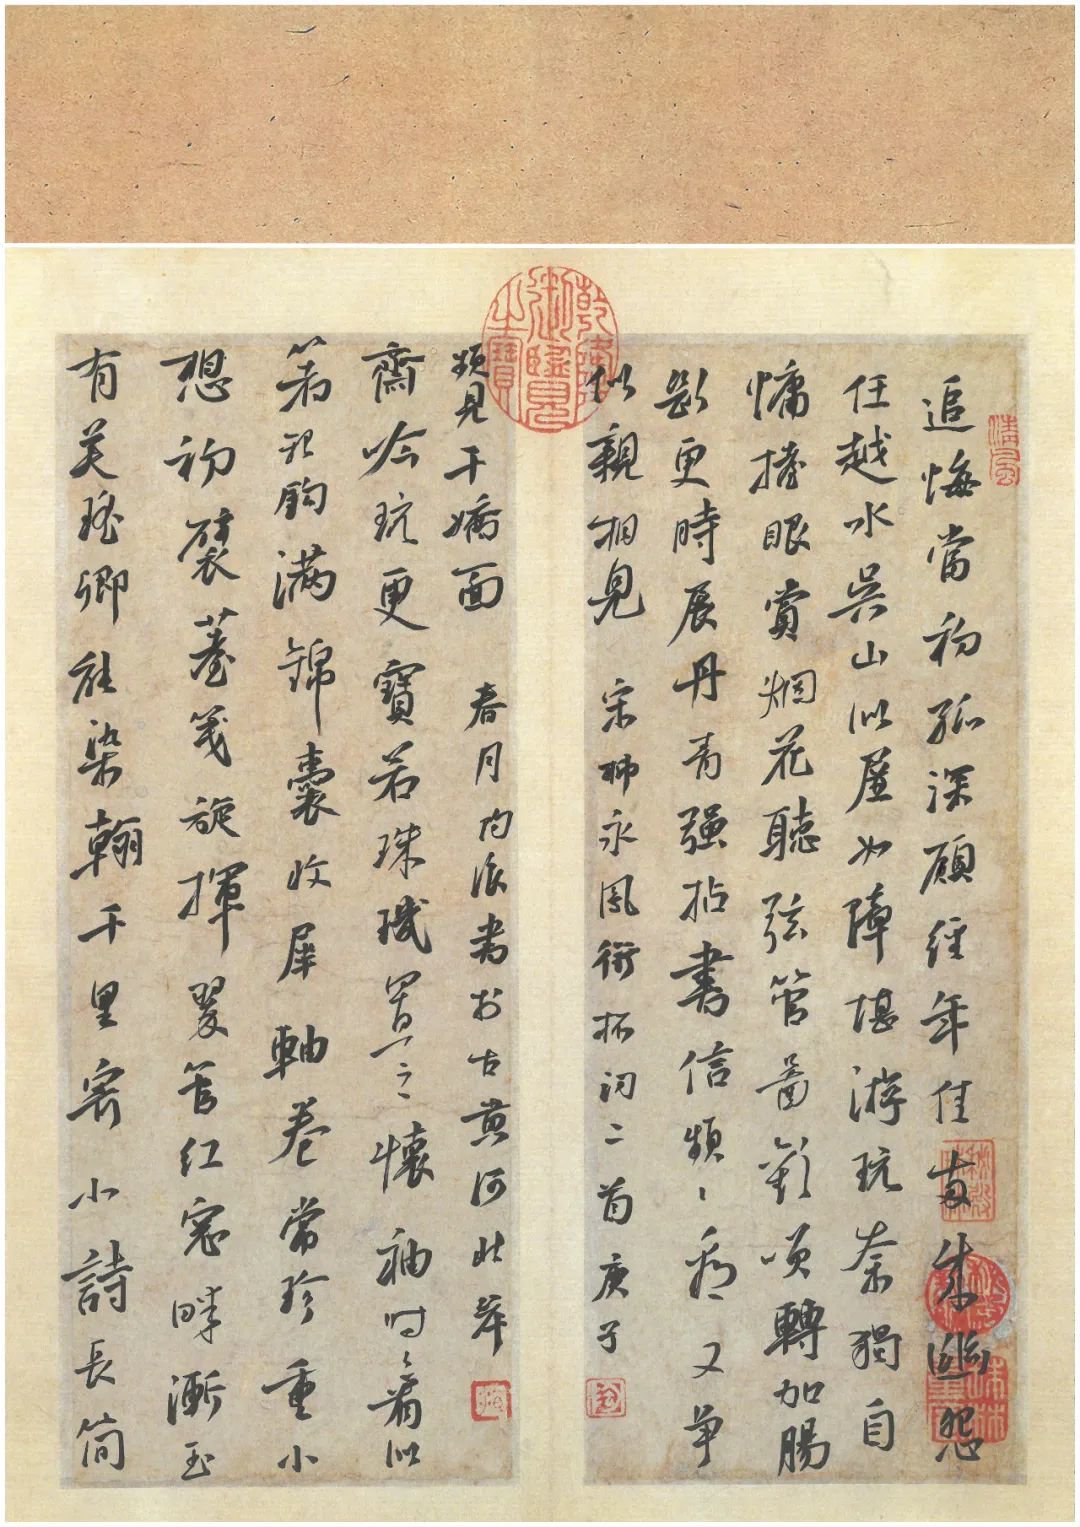 追悔當初孤深願經年佳成幽怨
任越水吳山似屋如障堪游玩奈獨自
慵擡眼賞烟花聽弦管啚歡笑轉加腸
斷更時展丹青强拈書信頻〻看又争
似親相見 宋柳永鳳銜杯詞二首庚子
有美瑶卿能染翰千里寄小詩長简
想初襞薹箋旋揮翠管红窓畔漸玉
箸銀鈎满錦囊收犀軸卷常珍重小
齋吟玩更寶若珠璣置之懷袖时〻看似
頻見千嬌面 春月灼浪書於古黄河北岸
乾隆御覽之寶
清風